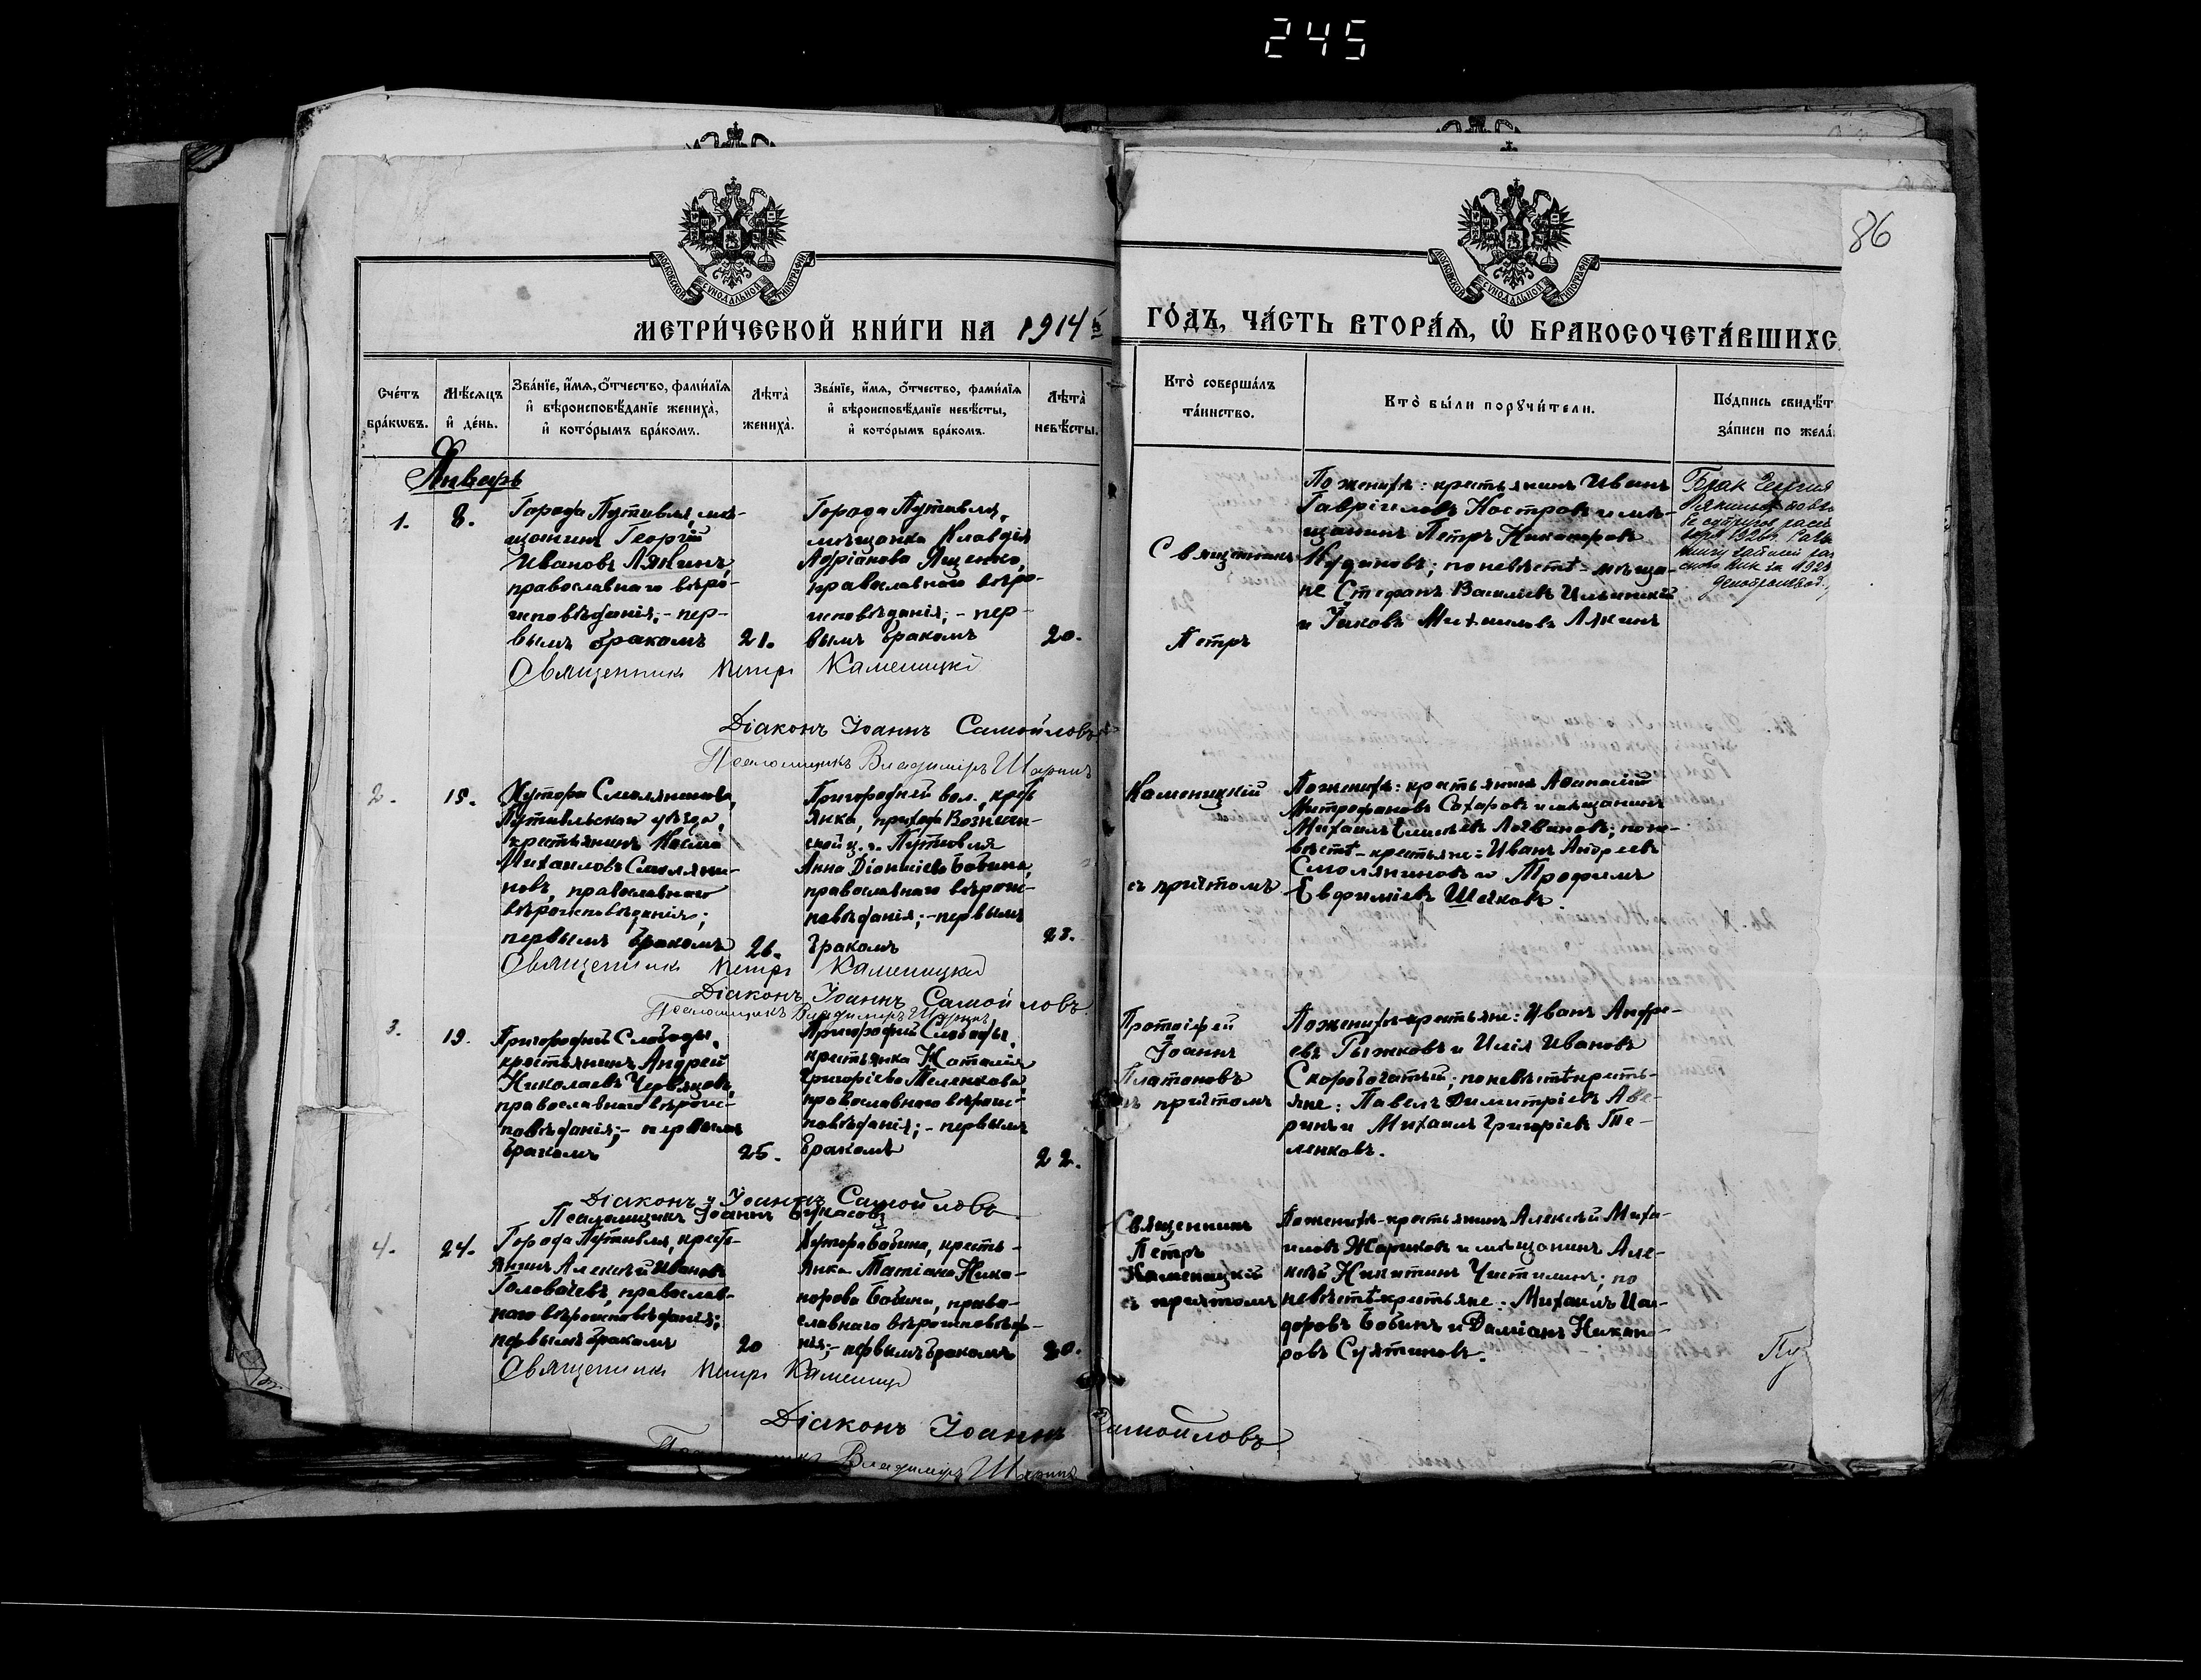 245
86
МОСКОВСКОЙ СѴНОДАЛЬНОЙ ТИПОГРАФІИ
МОСКОВСКОЙ СѴНОДАЛЬНОЙ ТИПОГРАФІИ
МЕТРИ́ЧЕСКОЙ КНИ́ГИ НА 1914 й
ГО́ДЪ, ЧА́СТЬ ВТОРА́Ѧ, Ѡ҆ БРАКОСОЧЕТА́ВШИХС
Сче́тъ
бра́кѡвъ.
Мѣ́сѧцъ
и҆ де́нь.
Зва́нїе, и҆́мѧ, ѻ҆́тчество, фами́лїѧ
и҆ вѣроисповѣ́данїе жениха̀,
и҆ кото́рымъ бра́комъ.
Лѣ́та̀
жениха̀.
Зва́нїе, и҆́мѧ, ѻ҆́тчество, фами́лїѧ
и҆ вѣроисповѣ́данїе невѣ́сты,
и҆ кото́рымъ бра́комъ.
Лѣ́та̀
невѣ́сты.
Кто̀ соверша́лъ
та́инство.
Кто̀ бы́ли порꙋчи́тели.
По́дпись свидѣ́т
за́писи по жела́
Январь
1.
8.
Города Путивля, мѣ-
щанинъ Георгій
Ивановъ Лякинъ,
православнаго вѣро-
исповѣданія; - пер-
вымъ бракомъ
21.
Города Путивля,
мѣщанка Клавдія
Адріанова Яценко,
православнаго вѣро-
исповѣданія; - пер-
вымъ бракомъ
20.
Священникъ
Петръ
По женихѣ: крестьянинъ Иванъ
Гавріиловъ Костровъ и мѣ-
щанинъ Петръ Никаноровъ
Кудиновъ; по невѣстѣ - мѣща-
не Стефанъ Василіевъ Ильинскій
и Іаковъ Михаиловъ Лякинъ
Брак Георгия
1926
Священникъ Петръ Каменицкій
Діаконъ Іоаннъ Самойловъ
Псаломщикъ Владиміръ Шаринъ
2.
15.
Хутора Смолянинова,
Путивльскаго уѣзда,
крестьянинъ Косма
Михаиловъ Смоляни-
новъ, православнаго
вѣроисповѣданія;
первымъ бракомъ
26.
Пригородней вол., крест
янка, прихода Вознесен-
ской ц. г. Путивля
Анна Діонисіева Бобина,
православнаго вѣроис-
повѣданія; - первымъ
бракомъ
23.
Каменицкій
съ причтомъ
По женихѣ: крестьянинъ Афанасій
Митрофановъ Сахаровъ и мѣщанинъ
Михаилъ Литвиновъ; по не-
вѣстѣ - крестьяне: Иванъ Андреевъ
Смоляниновъ и Трофимъ
Евфиміевъ Шейковъ.
Священникъ Петръ Каменицкій
Діаконъ Іоаннъ Самойловъ
Псаломщикъ Владиміръ Шаринъ
3.
19.
Пригородней Слободы,
крестьянинъ Андрей
Николаевъ Червяцовъ,
православнаго вѣроис-
повѣданія; - первымъ
бракомъ
25.
Пригородней Слободы,
крестьянка Наталія
Григоріева Теленкова,
православнаго вѣроис-
повѣданія; - первымъ
бракомъ
22.
Протоіерей
Іоаннъ
Платоновъ
съ причтомъ
По женихѣ - крестьяне: Иванъ Андре-
евъ Рыжковъ и Илія Ивановъ
Скоробогатый; по невѣстѣ кресть-
яне: Павелъ Димитріевъ Аве-
ринъ и Михаилъ Григоріевъ Те-
ленковъ.
Діаконъ Іоаннъ Самойловъ
Псаломщикъ Іоаннъ Булгасовъ
4.
24.
Города Путивля, кресть-
янинъ Алексѣй Ивановъ
Головачевъ, православ-
наго вѣроисповѣданія;
первымъ бракомъ
20
Хутора Бобина, кресть-
янка Татіана Ника-
норова Бобина, право-
славнаго вѣроисповѣда-
нія; - первымъ бракомъ
20.
Священникъ
Петръ
Каменицкій
съ причтомъ
По женихѣ - крестьянинъ Алексѣй Миха-
иловъ Жариковъ и мѣщанинъ Але-
ксѣй Никитинъ Чистилинъ; по
невѣстѣ - крестьяне: Михаилъ Иси-
доровъ Бобинъ и Даміанъ Никано-
ровъ Сухтиновъ.
Пу
Священникъ Петръ Камениц
Діаконъ Іоаннъ Самойловъ
Владиміръ Шаринъ